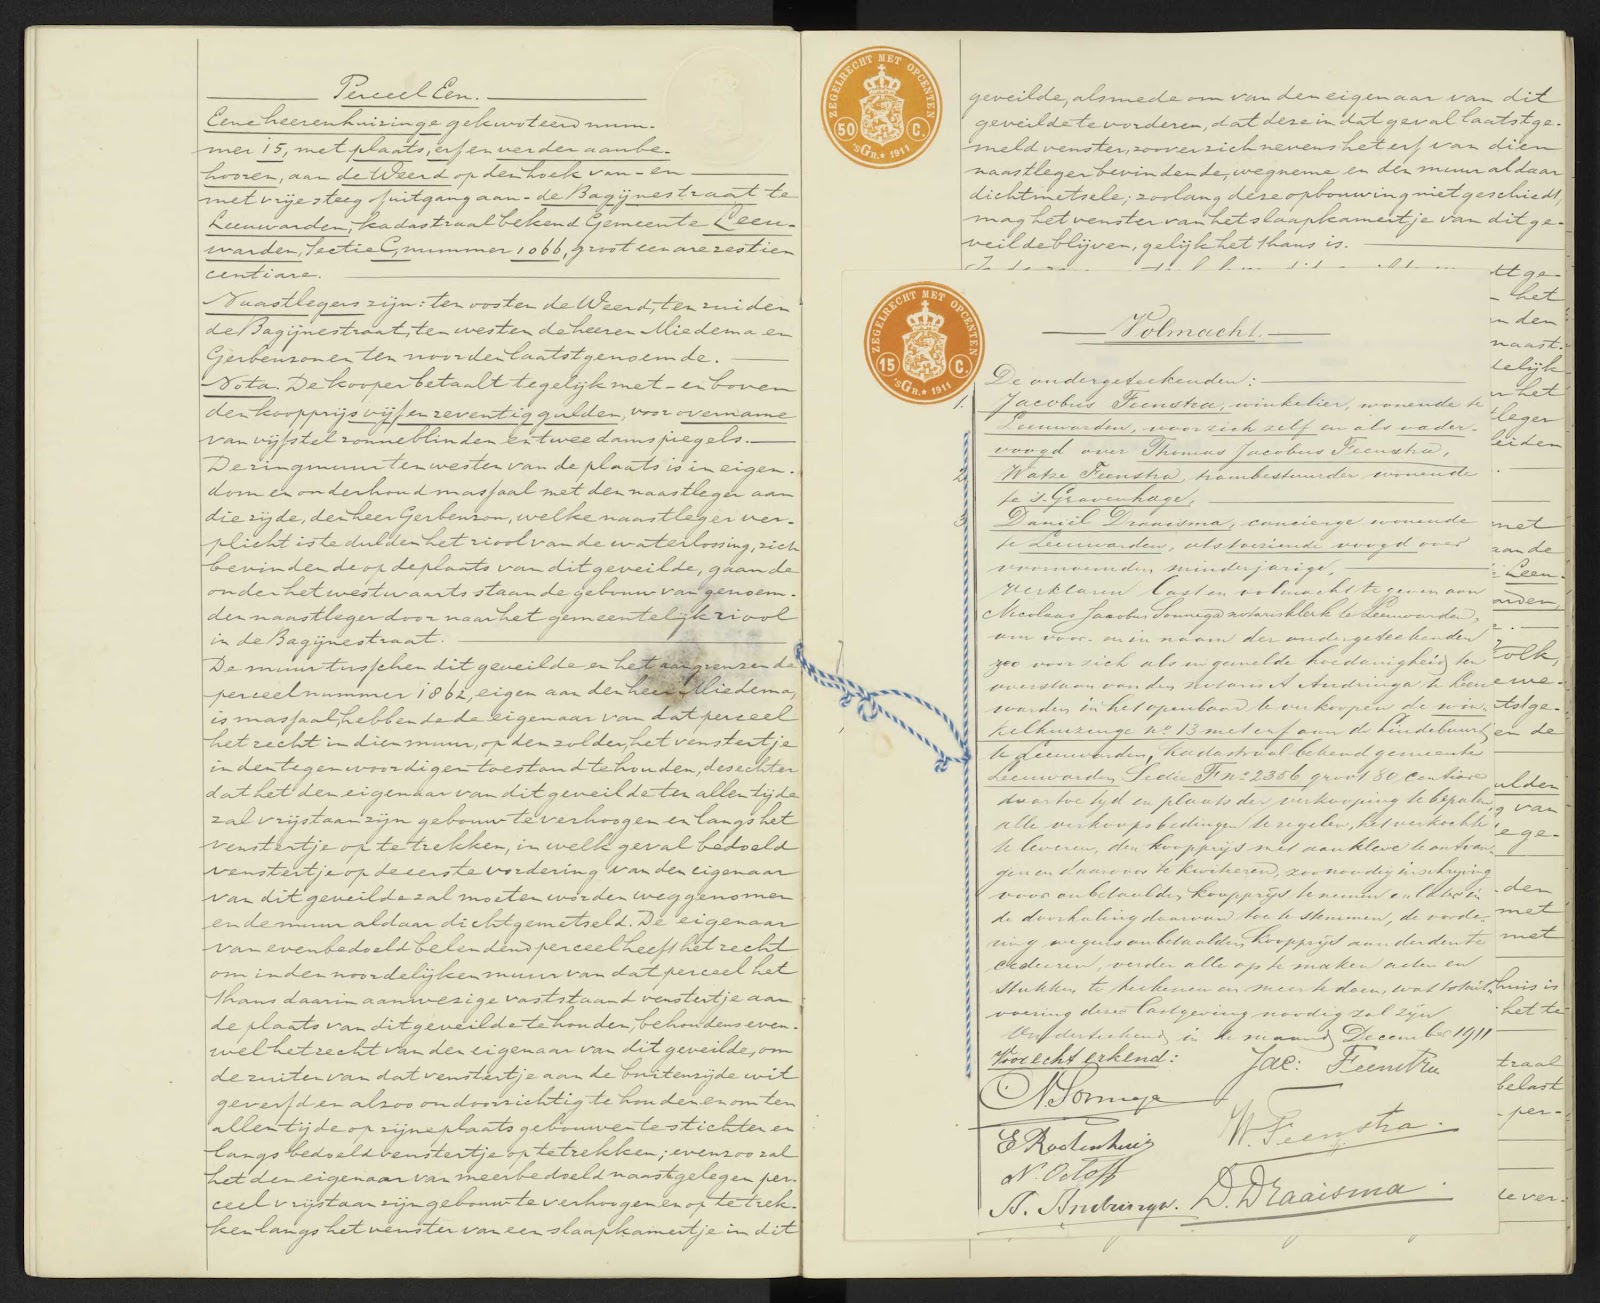 Perceel Een.
Eene heerenhuizinge gekwoteerd num-
mer 15, met plaats, erf en verder aanbe-
hooren, aan de Weerd op den hoek van - en
met vrije steeg of uitgang aan - de Bagijnestraat te
Leeuwarden, kadastraal bekend Gemeente Leeu-
warden, sectie C, nummer 1066, groot een are zestien
centiare.
Naastlegers zijn: ten oosten de Weerd, ten zuiden
de Bagijnestraat, ten westen de heeren Miedema en
Gerbenzon en ten noorden laatstgenoemde.
Nota. De kooper betaalt tegelijk met - en boven
den koopprijs vijf en zeventig gulden, voor overname
van vijf stel zonneblinden en twee damspiegels.
De ringmuur ten westen van de plaats is in eigen-
dom en onderhoud massaal met den naastleger aan
die zijde, den heer Gerbenzon, welke naastleger ver-
plicht is te dulden het riool van de waterlossing, zich
bevindende op de plaats van dit geveilde, gaande
onder het westwaarts staande gebouw van genoem-
den naastleger door naar het gemeentelijk riool
in de Bagijnestraat.
De muur tusschen dit geveilde en het aangrenzende
perceel nummer 1862, eigen aan den heer Miedema,
is massaal, hebbende de eigenaar van dat perceel
het recht in dien muur, op den zolder, het venstertje
in den tegenwoordigen toestand te houden, des echter
dat het den eigenaar van dit geveilde ten allen tijde
zal vrijstaan zijn gebouw te verhoogen en langs het
venstertje op te trekken, in welk geval bedoeld
venstertje op de eerste vordering van den eigenaar
van dit geveilde zal moeten worden weggenomen
en de muur aldaar dichtgemetseld. De eigenaar
van evenbedoeld belendend perceel heeft het recht
om in den noordelijken muur van dat perceel het
thans daarin aanwezige vaststaand venstertje aan
de plaats van dit geveilde te houden, behoudens even-
wel het recht van den eigenaar van dit geveilde, om
de ruiten van dat venstertje aan de buitenzijde wit
geverfd en alzoo ondoorzichtig te houden en om ten
allen tijde op zijne plaats gebouwen te stichten en
langs bedoeld venstertje op te trekken; evenzoo zal
het den eigenaar van meerbedoeld naastgelegen per-
ceel vrijstaan zijn gebouw te verhoogen en op te trek-
ken langs het venster van een slaapkamertje in dit
ZEGELRECHT MET OPCENTEN
50 C.
'sGR.* 1911
geveilde, alsmede om van den eigenaar van dit
geveilde te vorderen, dat deze in dat geval laatstge-
meld venster, zoover zich nevens het erf van dien
naastleger bevindende, wegneme en den muur aldaar
dichtmetsele; zoolang deze opbouwing niet geschiedt,
mag het venster van het slaapkamertje van dit ge-
veilde blijven, gelijk het thans is.
ZEGELRECHT MET OPCENTEN
15 C.
'sGR.* 1911
Volmacht.
De ondergeteekenden:
1. Jacobus Feenstra, winkelier, wonende te
Leeuwarden, voor zich zelf en als vader-
voogd over Thomas Jacobus Feenstra,
2. Watze Feenstra, trambestuurder wonende
te 's Gravenhage,
3. Daniël Draaisma, concierge wonende
te Leeuwarden, als toeziende voogd over
voornoemden minderjarige,
verklaren last en volmacht te geven aan
Nicolaas Jacobus Sonnega notarisklerk te Leeuwarden,
om voor- en in naam der ondergeteekenden
zoo voor zich als in gemelde hoedanigheid, ten
overstaan van den notaris A Andringa te Leeu-
warden in het openbaar te verkoopen de win-
kelhuizinge no 13 met erf aan de Lindebuurt
te Leeuwarden, kadastraal bekend gemeente
Leeuwarden, Sectie F no 2356 groot 80 centiare
daartoe tijd en plaats der verkooping te bepalen,
alle verkoopsbedingen te regelen, het verkochte
te leveren, den koopprijs met aankleve te ontvan-
gen en daarvoor te kwiteeren, zoo noodig inschrijving
voor onbetaalden koopprijs te nemen en later in
de doorhaling daarvan toe te stemmen, de vorde-
ring wegens onbetaalden koopprijs aan derden te
cedeeren, verder alle op te maken acten en
stukken te teekenen en meer te doen, wat tot uit-
voering dezer lastgeving noodig zal zijn
Onderteekend, in de maand December 1911
Voor echt erkend: Jac: Feenstra
N Sonnega
W. Feenstra.
E Rootenhuis
N. Ooloff
A. Andringa. D. Draaisma.